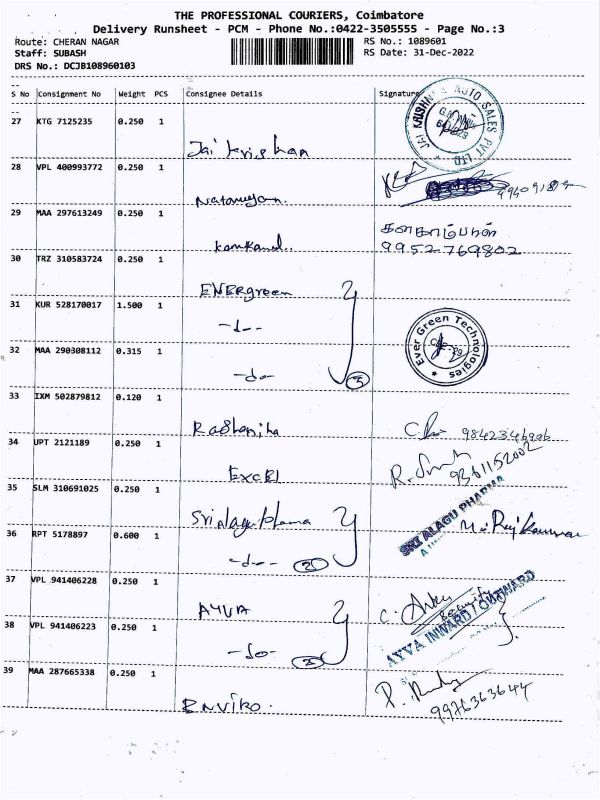 THE PROFESSIONAL COURIERS, Coimbatore
Delivery Runsheet - PCM - Phone No.:0422-3505555 - Page No.:3
Route: CHERAN NAGAR RS No.: 1089601
Staff: SUBASH RS Date: 31-Dec-2022
DRS No.: DCJB108960103
S No Consignment No Weight PCS Consignee Details Signature
27 KTG 7125235 0.250 1 Jai krishnan JAI KRISHNAA AUTO SALES PVT LTD
28 VPL 400993772 0.250 1
29 MAA 297613249 0.250 1 9952769802
30 TRZ 310583724 0.250 1 ENERgreen
31 KUR 528170017 1.500 1 -do-
32 MAA 290308112 0.315 1 -do- 3 Ever Green Technologies
33 IXM 502879812 0.120 1
34 UPT 2121189 0.250 1 Excel 9361152002
35 SLM 310691025 0.250 1 SRI ALAGU PHARMA
36 RPT 5178897 0.600 1 -do- 2
37 VPL 941406228 0.250 1 AYVA Security
38 VPL 941406223 0.250 1 -do- 2 AYVA INWARD / OUTWARD
39 MAA 287665338 0.250 1 Enviro. 9976363644